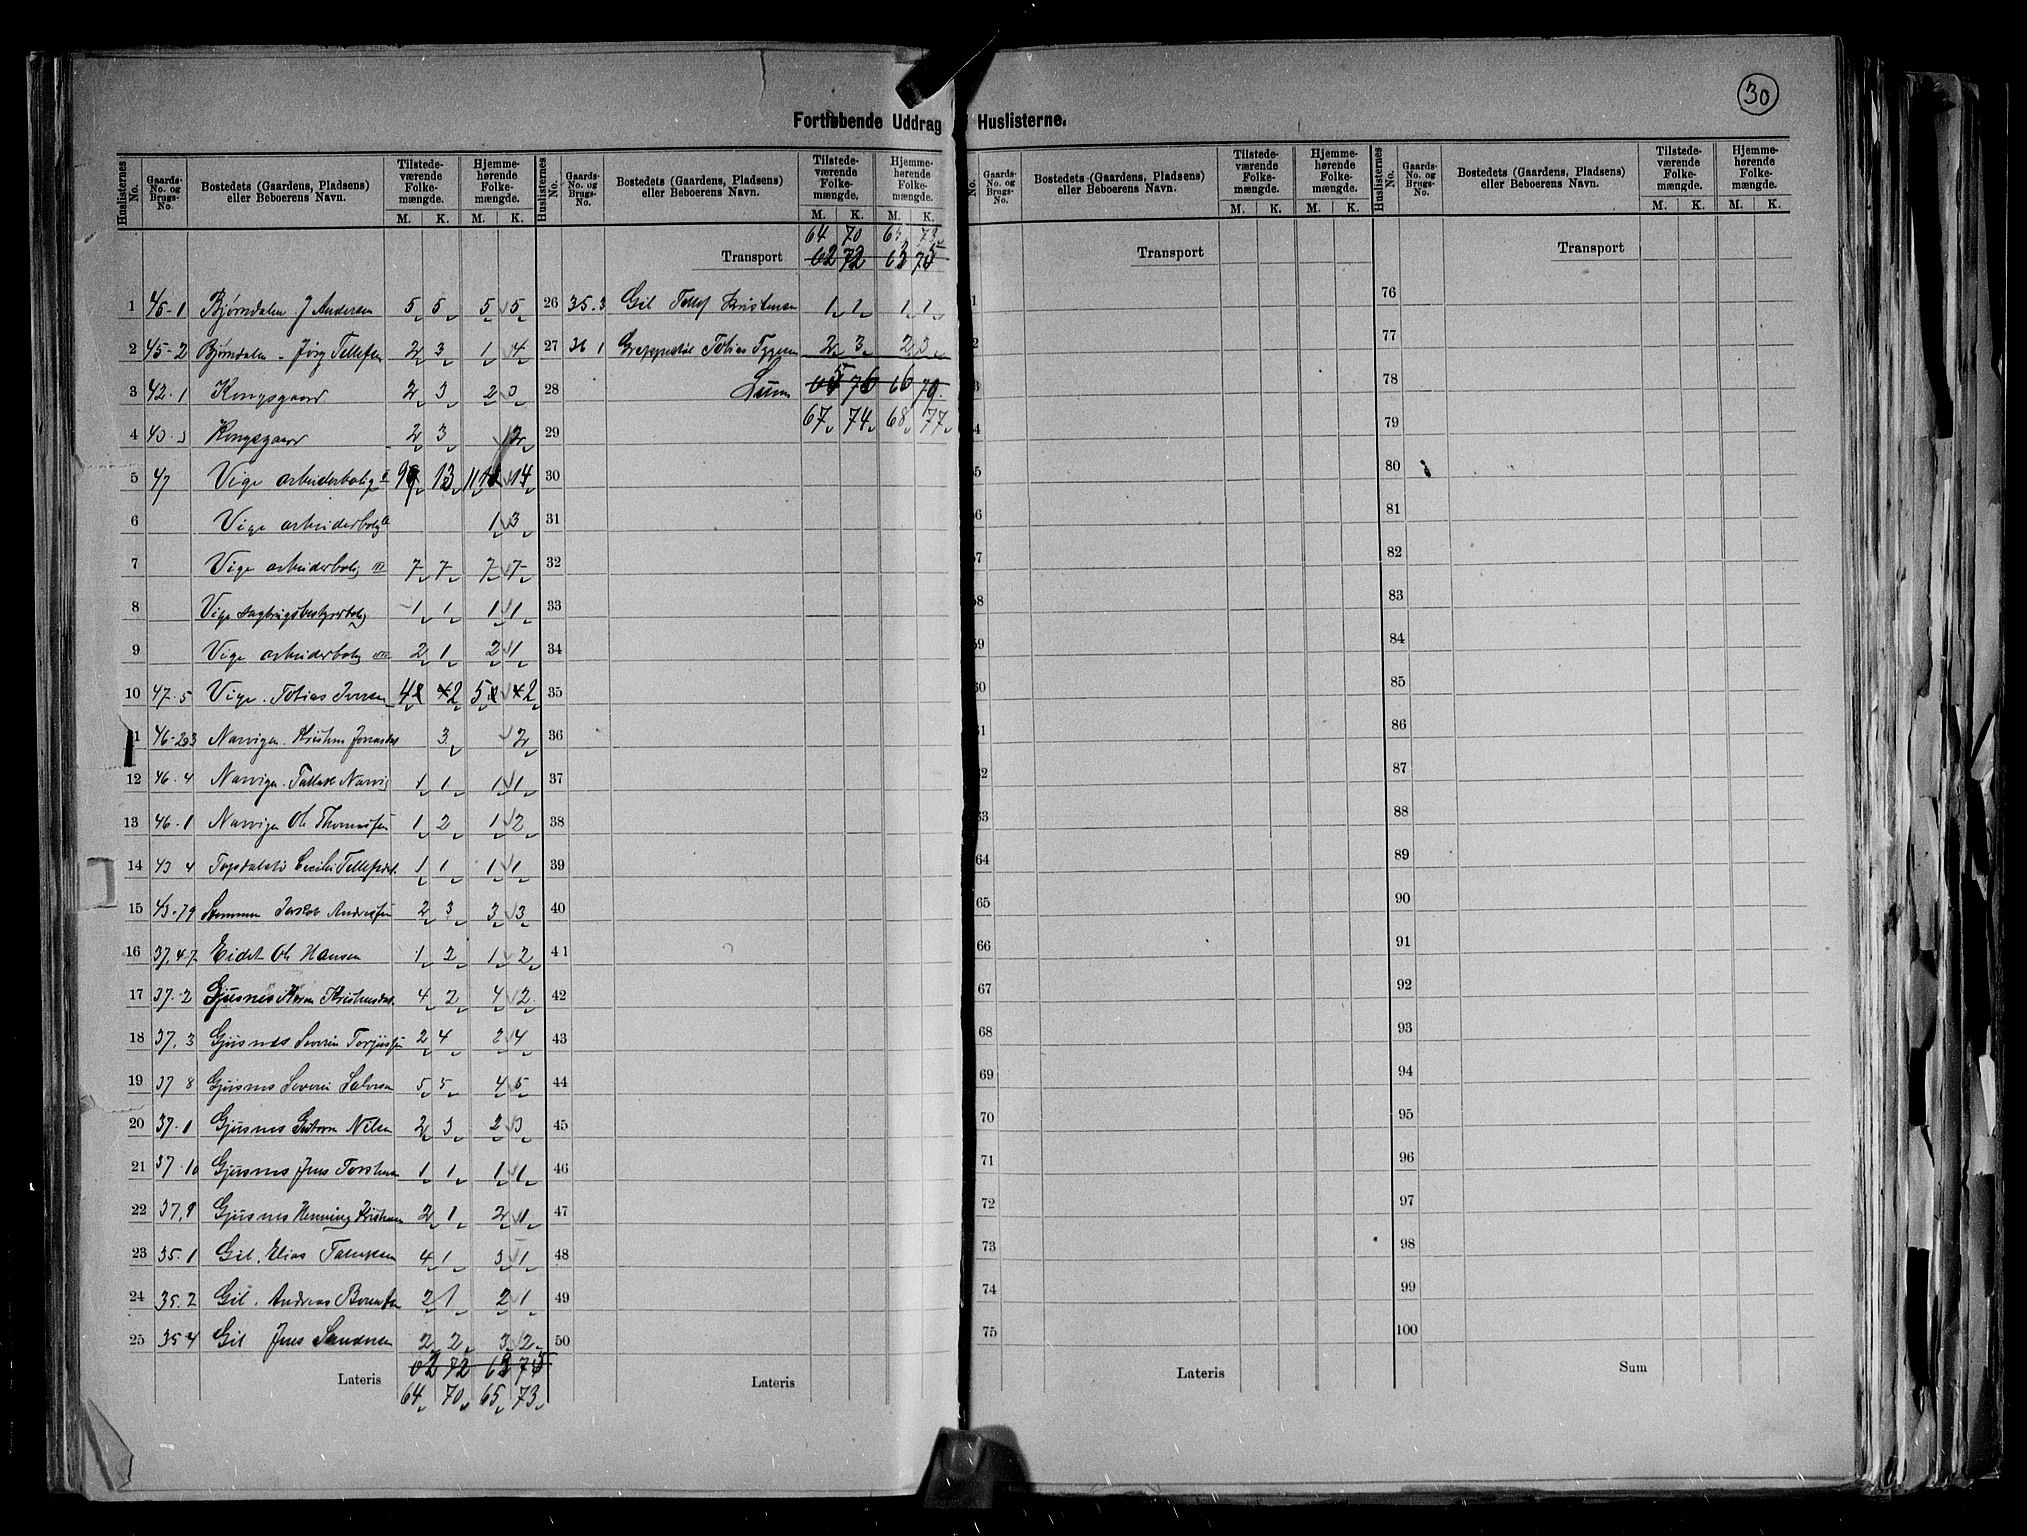 30
Fortløbende Uddrag Huslisterne.
Huslisternes No. Gaards-No. og Brugs-No. Bostedets (Gaardens, Pladsens) eller Beboerens Navn. Tilstedeværende Folkemængde. M. K. Hjemmehørende Folkemængde. M. K.
1 45-1 Bjørndalen J Andersen 5 5 5 5
2 45-2 Bjørndalen - Jörg Tellefsen 2 3 1 4
3 42-1 Kongsgaard 2 3 2 3
4 Kongsgaard 2 3 2
5 47 Vige arbeiderbolig 13 14
6 Vige arbeiderbolig 1 3
7 Vige arbeiderbolig III 7 7 7 7
8 Vige 1 1 1 1
9 Vige arbeiderbolig 2 1 2 1
10 47-5 Vige. Tobias Iversen 4 2 5 2
46-2 3 Narvigen. 3 2
12 46-4 Narvigen. 1 1 1 1
13 46-1 Narvigen Ole Thomassen 1 2 1 2
14 43 4 Topdalstø Cecilie 1 1 1 1
15 43-79 Jakob 2 3 3 3
16 37,47 Eidet Ole Hansen 1 2 1 2
17 37-2 Gjusnes Karen 4 2 4 2
18 37,3 Gjusnes Severin 2 4 2 4
19 37 8 Gjusnes 5 5 4 5
20 37-1 Gjusnes Nilsen 2 3 2 3
21 37-10 Gjusnes Jens 1 1 1 1
22 37,9 Gjusnes Henning 2 1 2 1
23 35-1 Gil. Elias 4 1 3 1
24 35.2 Gil. Andreas 2 1 2 1
25 35-4 Gil Jens 2 2 3 2
62 72 63 75
Lateris
64 70 65 73
Huslisternes No. Gaards-No. og Brugs-No. Bostedets (Gaardens, Pladsens) eller Beboerens Navn. Tilstedeværende Folkemængde. M. K. Hjemmehørende Folkemængde. M. K.
64 70 65 73
Transport 62 72 63 75
26 35.3 Gil Tellef Kristensen 1 1 1 1
27 36 1 Tobias 2 3 2 3
28 Sum
29 67 74 68 77
30
31
32
33
34
35
36
37
38
39
40
41
42
43
44
45
46
47
48
49
50
Lateris
No. Gaards-No. og Brugs-No. Bostedets (Gaardens, Pladsens) eller Beboerens Navn. Tilstedeværende Folkemængde. M. K. Hjemmehørende Folkemængde. M. K.
Transport
64
65
66
67
68
69
70
71
72
73
74
75
Lateris
Huslisternes No. Gaards-No. og Brugs-No. Bostedets (Gaardens, Pladsens) eller Beboerens Navn. Tilstedeværende Folkemængde. M. K. Hjemmehørende Folkemængde. M. K.
Transport
76
77
78
79
80
81
82
83
84
85
86
87
88
89
90
91
92
93
94
95
96
97
98
99
100
Sum